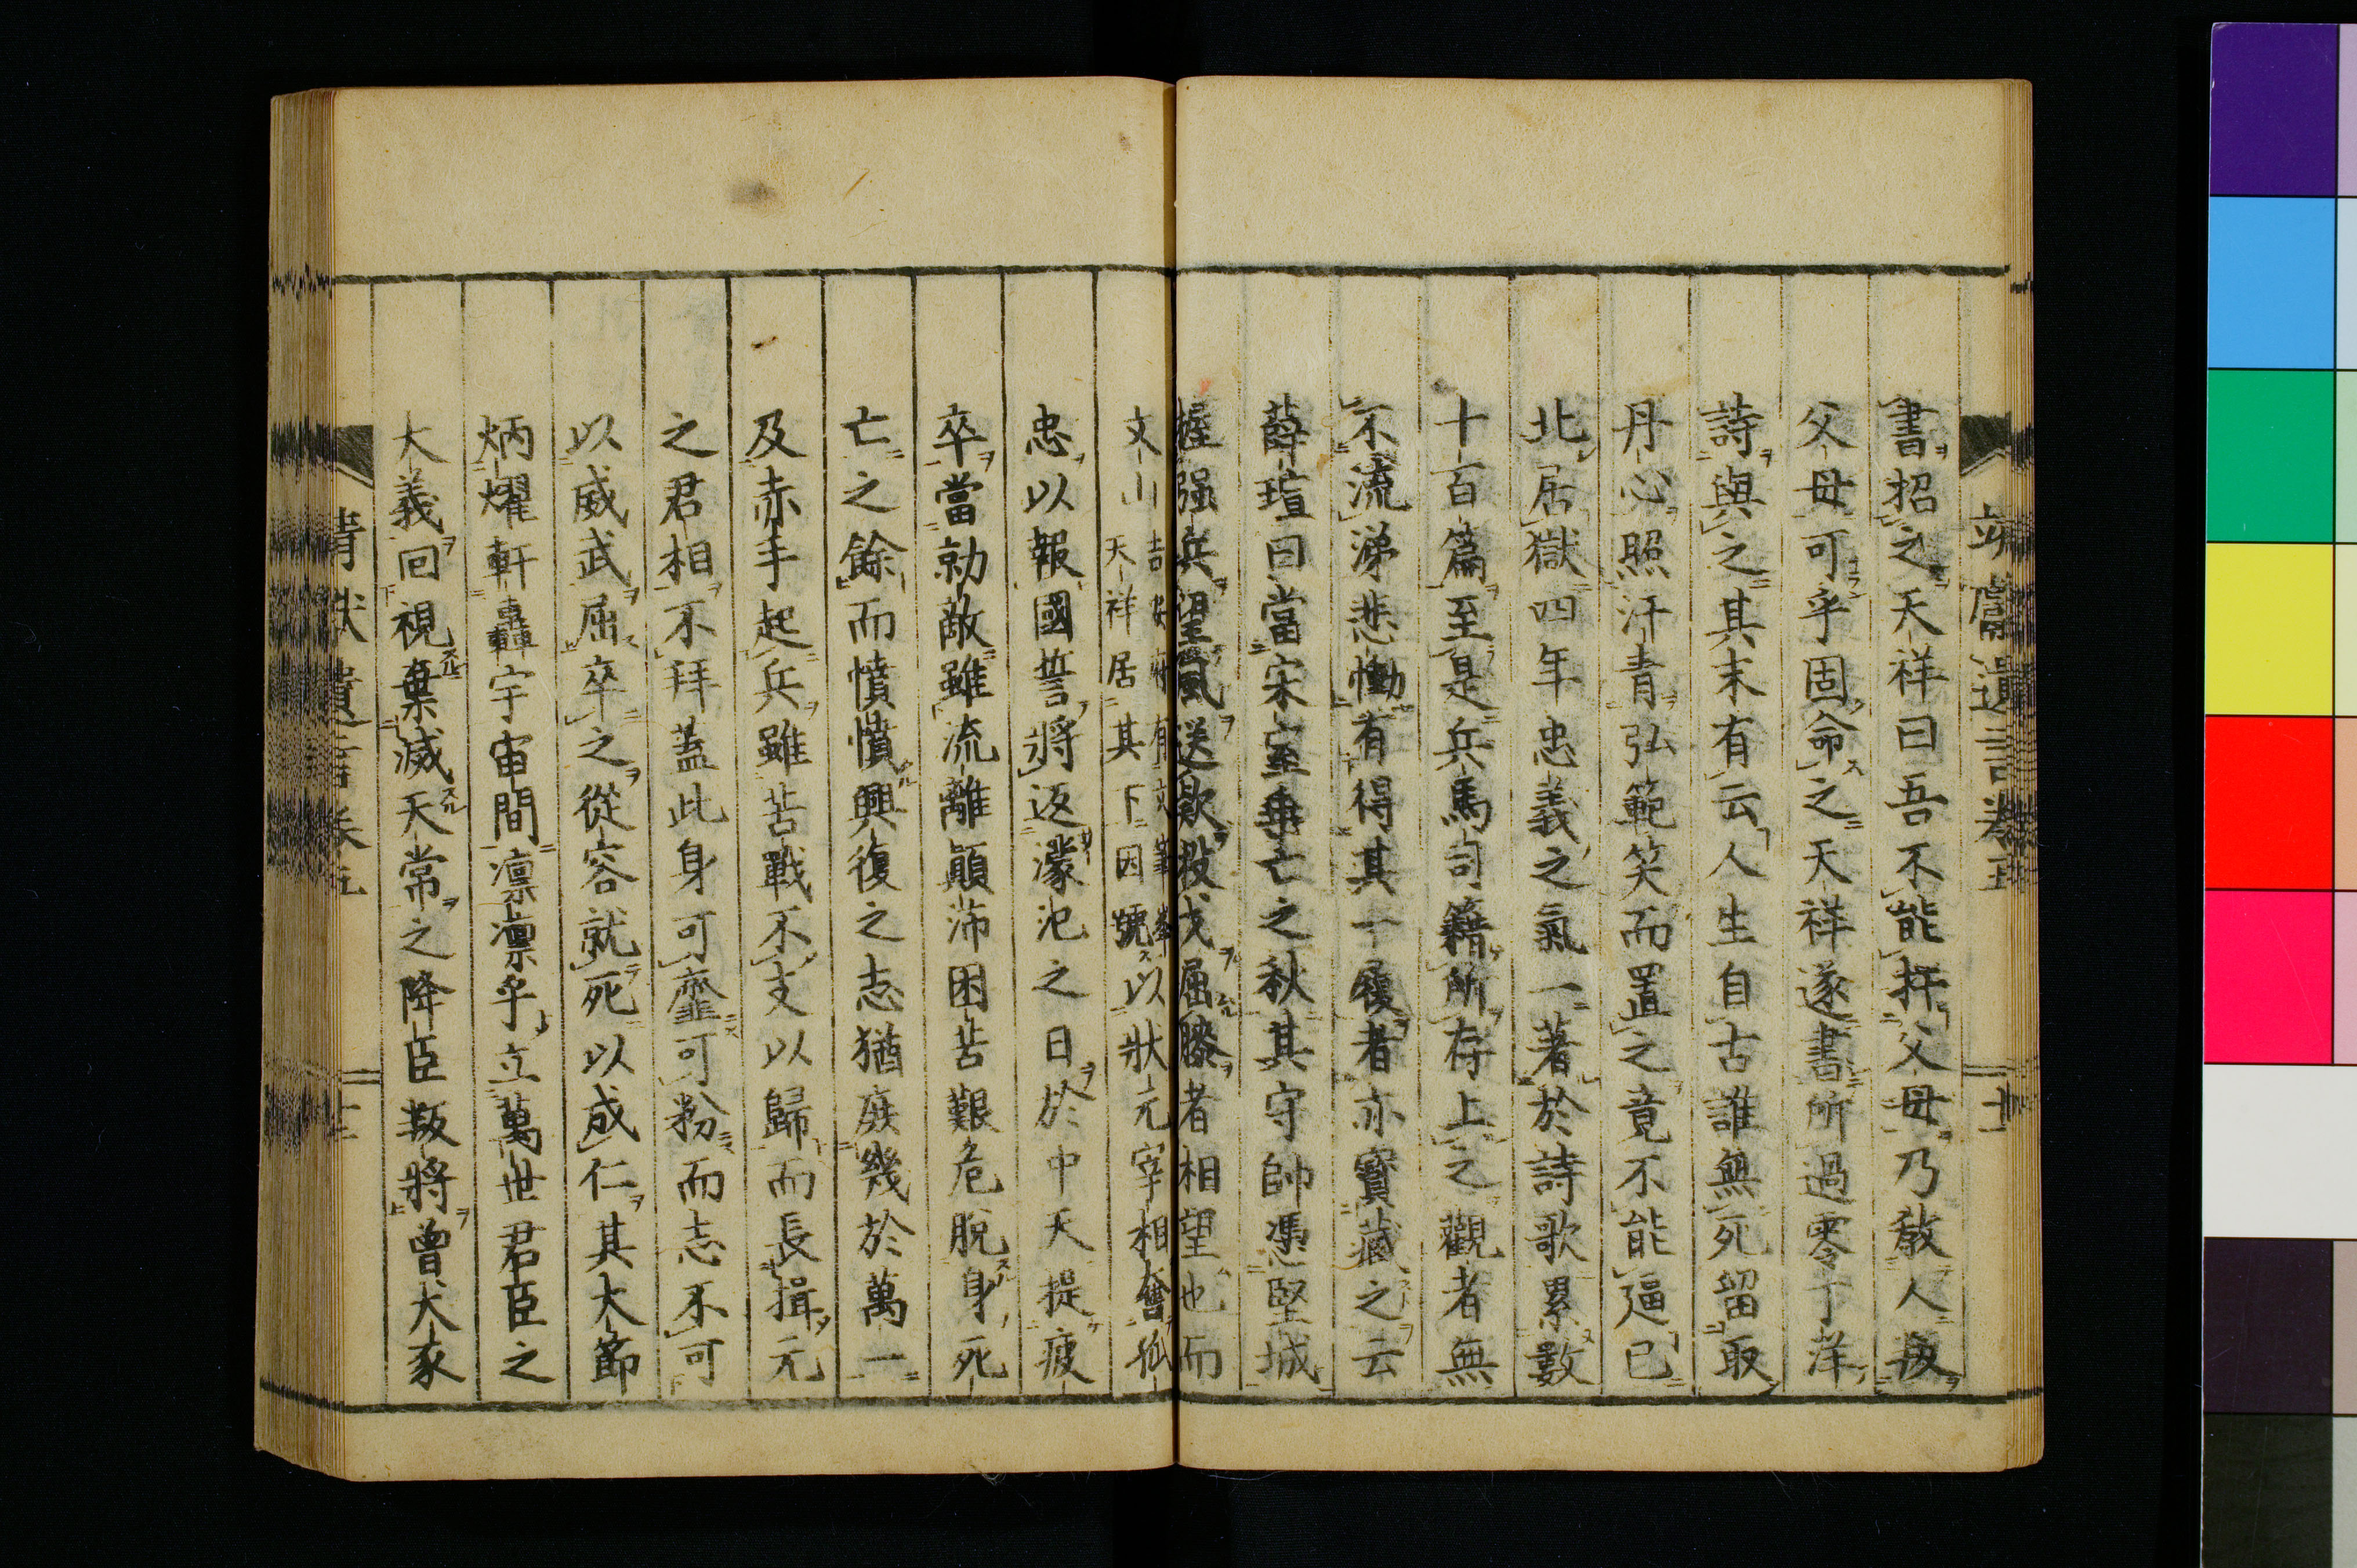 靖獻遺言卷五
十二
書招之天祥曰吾不能扞父母乃敎人叛
父母可乎固命之天祥遂書所過零丁洋
詩與之其末有云人生自古誰無死留取
丹心照汗青弘範笑而置之竟不能逼已
北居獄四年忠義之氣一著於詩歌累數
十百篇至是兵馬司籍所存上之觀者無
不流涕悲慟有得其一履者亦寶藏之云
薛瑄曰當宋室垂亡之秋其守帥憑堅城
握强兵望風送款投戈屈膝者相望也而
文山吉安府有文筆峯天祥居其下因號以狀元宰相奮孤
忠以報國誓將返濛汜之日於中天提疲
卒當勍敵雖流離顚沛困苦艱危脫身死
亡之餘而憤憤興復之志猶庶幾於萬一
及赤手起兵雖苦戰不支以歸而長揖元
之君相不拜蓋此身可韲可粉而志不可
以威武屈卒之從容就死以成仁其大節
炳燿軒轟宇宙間凛凛乎立萬世君臣之
大義回視棄滅天常之降臣叛將曾犬豕
靖獻遺言卷五